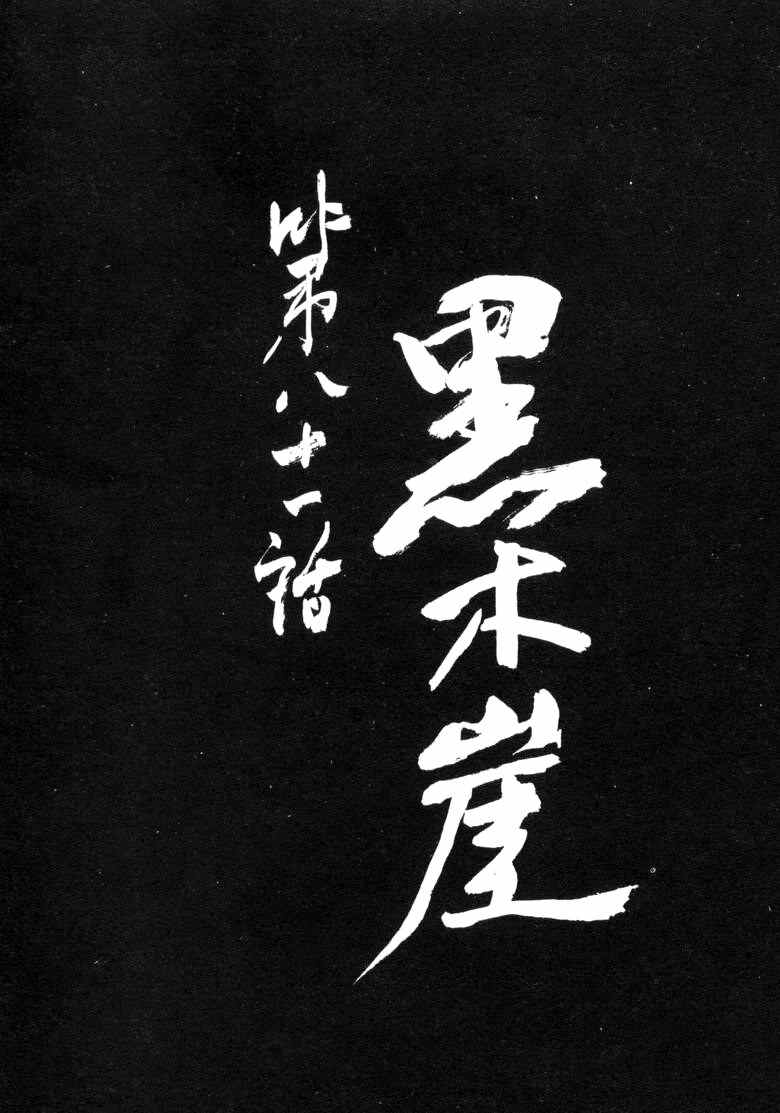 黑木崖
第八十一話